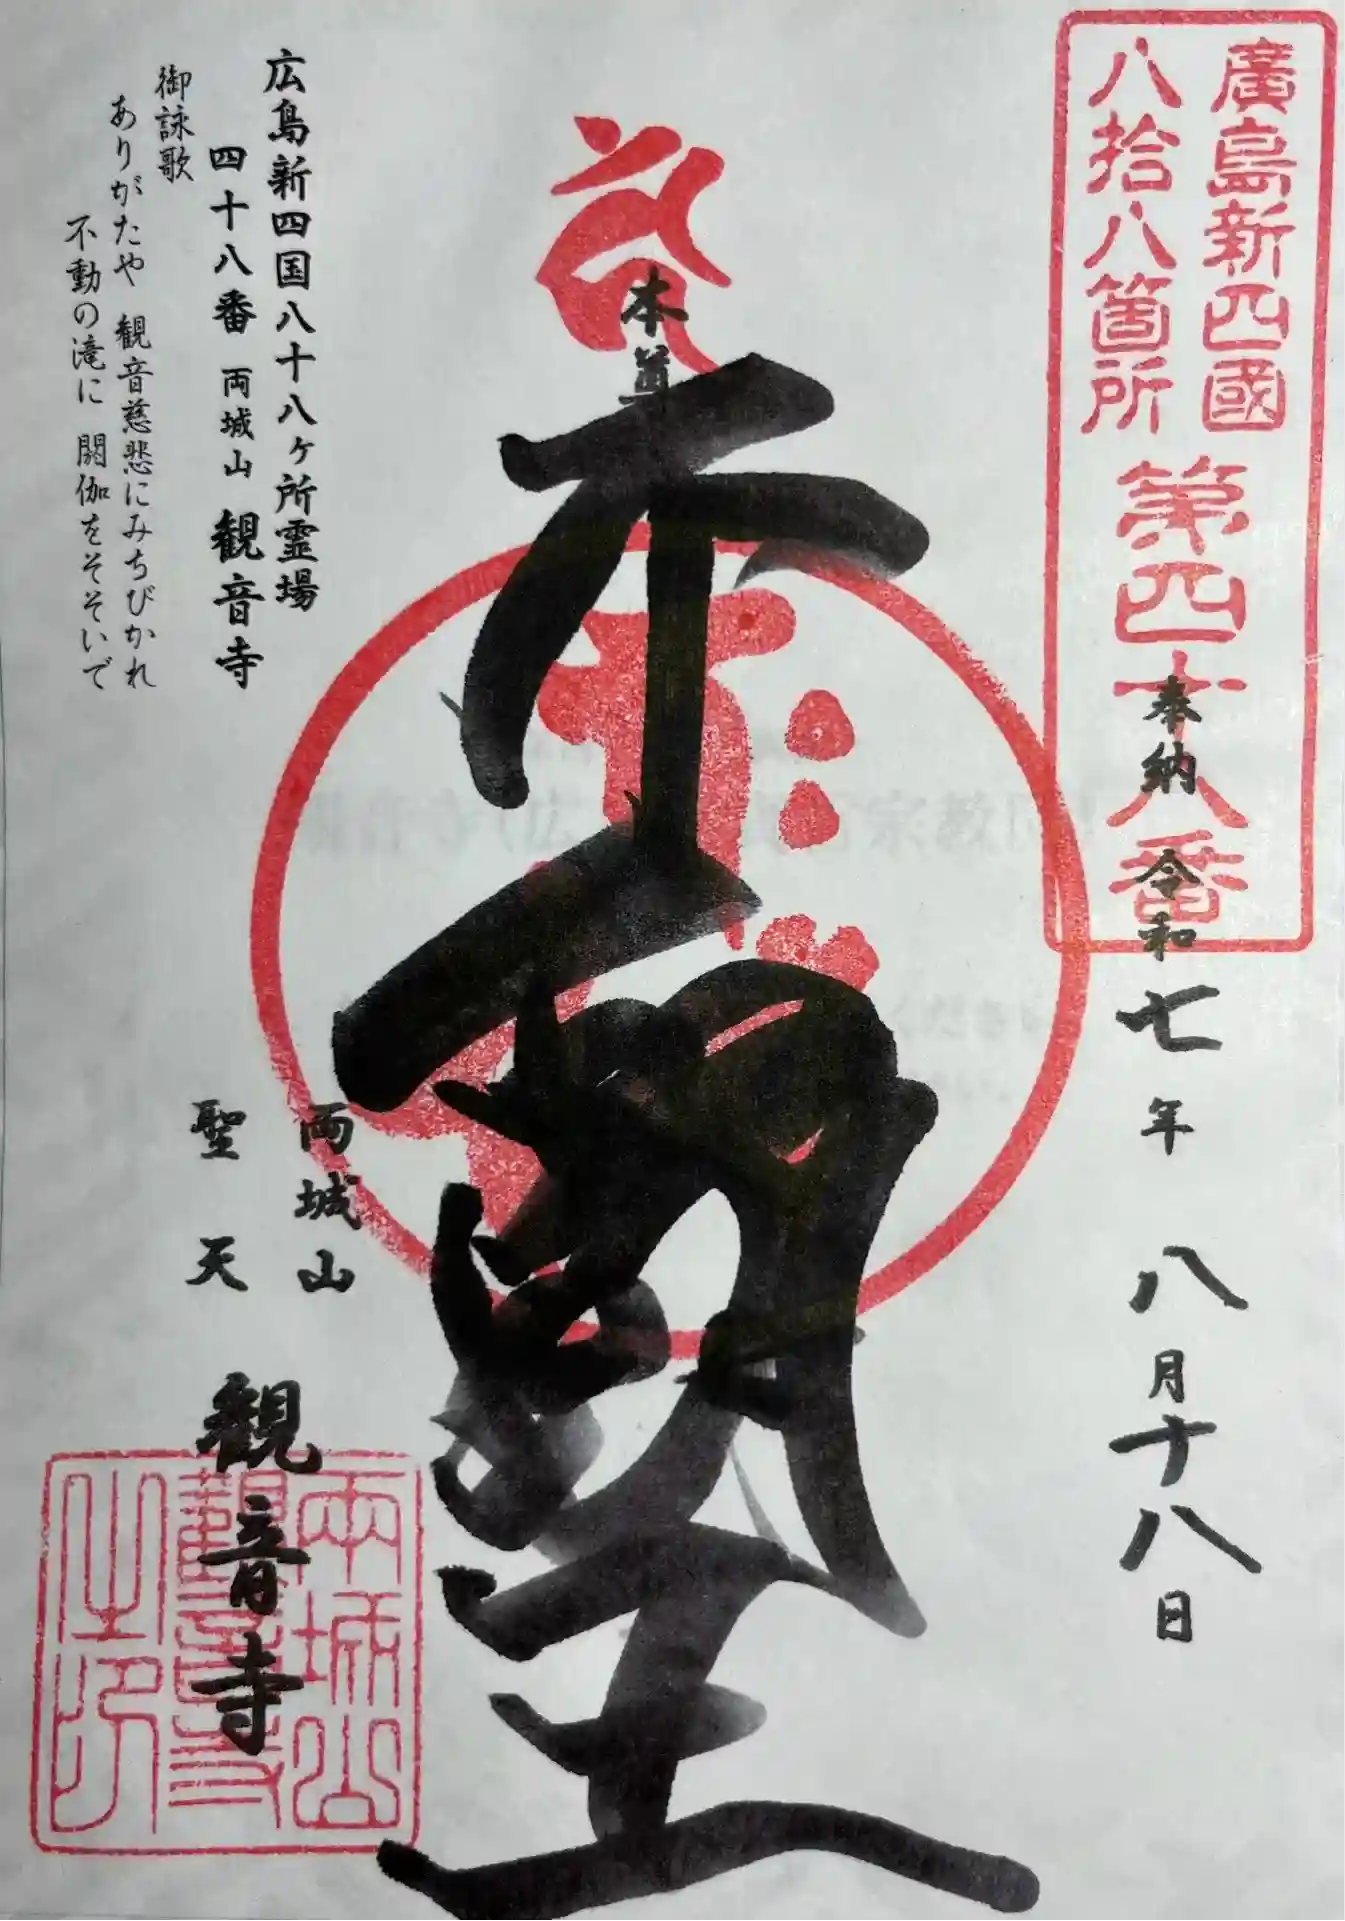 廣島新四國
八拾八箇所
第四十八番
奉納 令和七年 八月十八日
本尊
不動明王
広島新四国八十八ヶ所霊場
四十八番 両城山 観音寺
御詠歌
ありがたや 観音慈悲にみちびかれ
不動の滝に 閼伽をそそいで
両城山
聖天 観音寺
両城山
觀音寺
之印